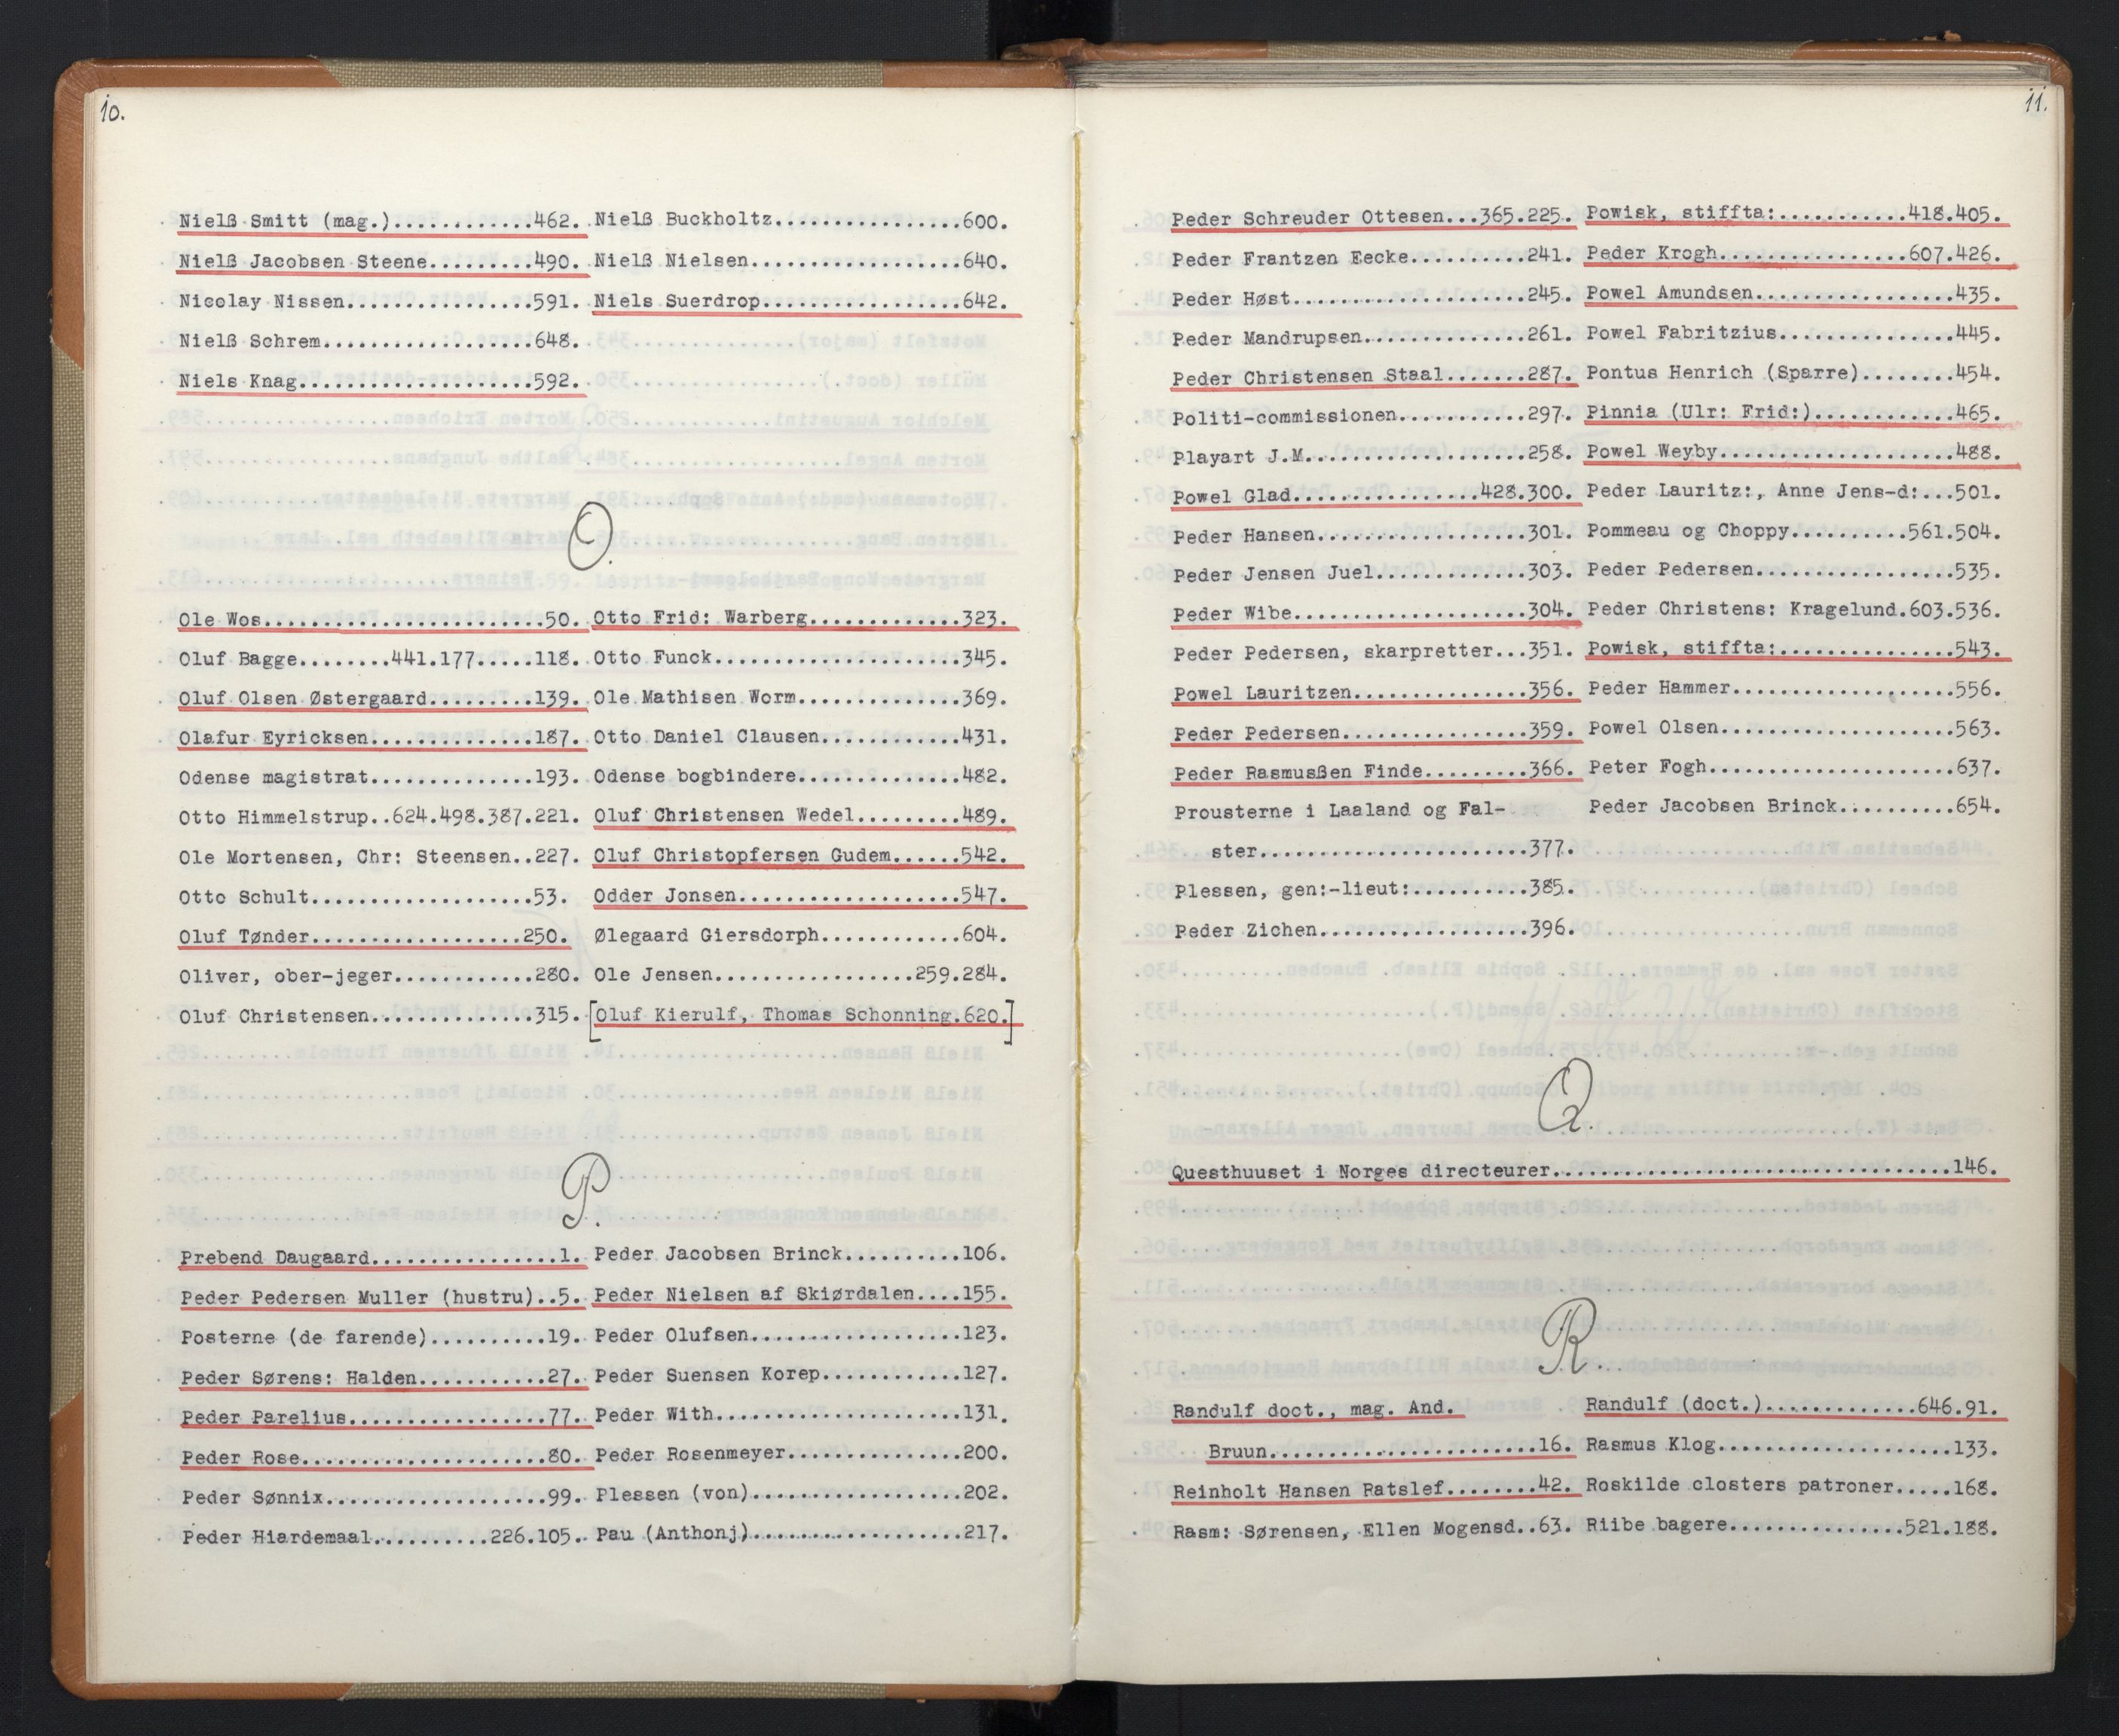 10.
Nielß Smitt (mag.)............462.
Nielß Jacobsen Steene.........490.
Nicolay Nissen................591.
Nielß Schrem..................648.
Niels Knag....................592.
Nielß Buckholtz................600.
Nielß Nielsen..................640.
Niels Suerdrop.................642.
O.
Ole Wos........................50.
Oluf Bagge........441.177.....118.
Oluf Olsen Østergaard.........139.
Olafur Eyricksen..............187.
Odense magistrat..............193.
Otto Himmelstrup..624.498.387.221.
Ole Mortensen, Chr: Steensen..227.
Otto Schult...................53.
Oluf Tønder..................250.
Oliver, ober-jeger............280.
Oluf Christensen..............315.
Otto Frid: Warberg.............323.
Otto Funck.....................345.
Ole Mathisen Worm..............369.
Otto Daniel Clausen............431.
Odense bogbindere..............482.
Oluf Christensen Wedel.........489.
Oluf Christopfersen Gudem......542.
Odder Jonsen...................547.
Ølegaard Giersdorph............604.
Ole Jensen.................259.284.
[Oluf Kierulf, Thomas Schonning.620.]
P.
Prebend Daugaard................1.
Peder Pedersen Muller (hustru)..5.
Posterne (de farende)..........19.
Peder Sørens: Halden...........27.
Peder Parelius.................77.
Peder Rose.....................80.
Peder Sønnix...................99.
Peder Hiardemaal..........226.105.
Peder Jacobsen Brinck..........106.
Peder Nielsen af Skiørdalen....155.
Peder Olufsen..................123.
Peder Suensen Korep............127.
Peder With.....................131.
Peder Rosenmeyer...............200.
Plessen (von)..................202.
Pau (Anthonj)..................217.
11.
Peder Schreuder Ottesen...365.225.
Peder Frantzen Eecke..........241.
Peder Høst....................245.
Peder Mandrupsen..............261.
Peder Christensen Staal.......287.
Politi-commissionen...........297.
Playart J.M...................258.
Powel Glad................428.300.
Peder Hansen..................301.
Peder Jensen Juel.............303.
Peder Wibe....................304.
Peder Pedersen, skarpretter...351.
Powel Lauritzen...............356.
Peder Pedersen................359.
Peder Rasmusßen Finde.........366.
Prousterne i Laaland og Fal-
ster.......................377.
Plessen, gen:-lieut:..........385.
Peder Zichen..................396.
Powisk, stiffta:...........418.405.
Peder Krogh................607.426.
Powel Amundsen.................435.
Powel Fabritzius...............445.
Pontus Henrich (Sparre)........454.
Pinnia (Ulr: Frid:)............465.
Powel Weyby....................488.
Peder Lauritz:, Anne Jens-d:...501.
Pommeau og Choppy..........561.504.
Peder Pedersen.................535.
Peder Christens: Kragelund.603.536.
Powisk, stiffta:...............543.
Peder Hammer...................556.
Powel Olsen....................563.
Peter Fogh.....................637.
Peder Jacobsen Brinck..........654.
Q.
Questhuuset i Norges directeurer..................................146.
R.
Randulf doct., mag. And.
Bruun.......................16.
Reinholt Hansen Ratslef........42.
Rasm: Sørensen, Ellen Mogensd..63.
Randulf (doct.).............646.91.
Rasmus Klog....................133.
Roskilde closters patroner.....168.
Riibe bagere...............521.188.